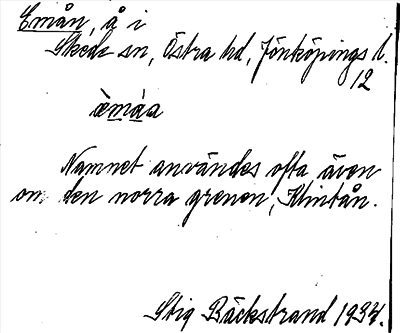 Emån, å i
Skede sn, Östra hd, Jönköpings l.
12
èmáa
Namnet användes ofta även
om den norra grenen, Klintån.
Stig Bäckstrand 1934.